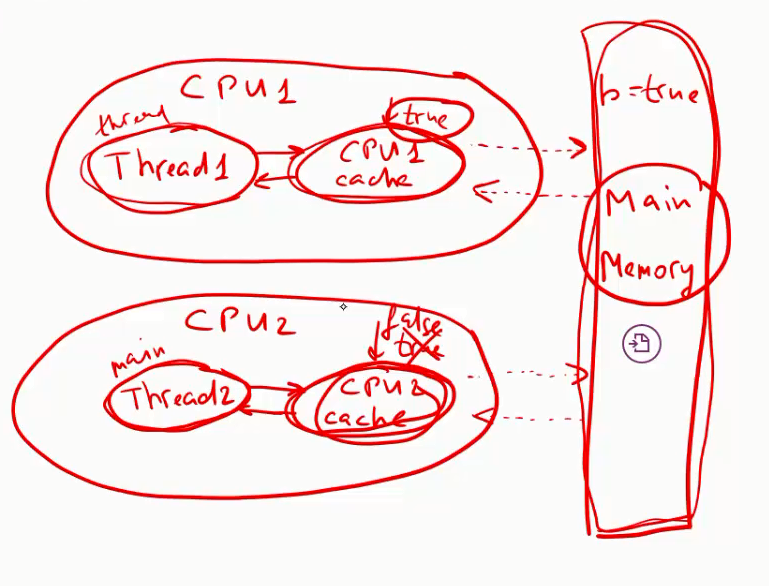 CPU1
thread
Thread1
true
CPU1
cache
b=true
Main
Memory
CPU2
main
Thread2
false
true
CPU2
cache